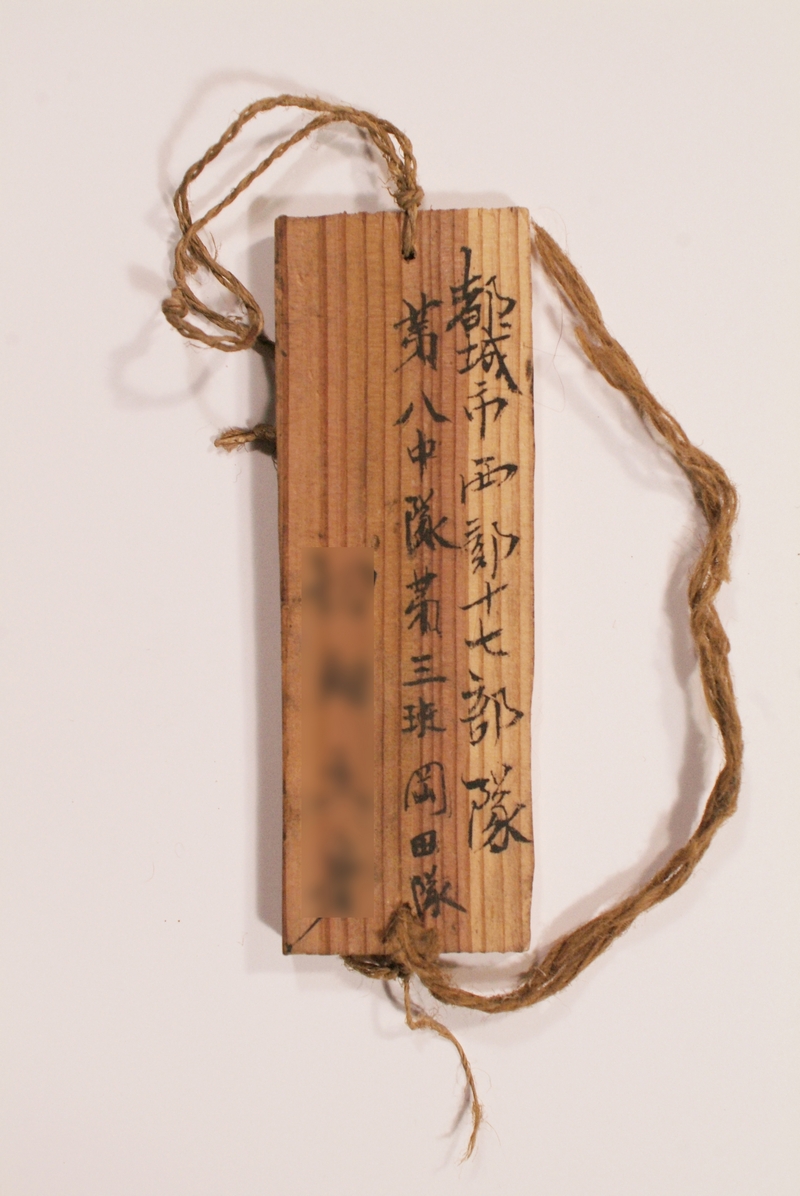 都城市西部十七部隊
第八中隊第三班岡田隊